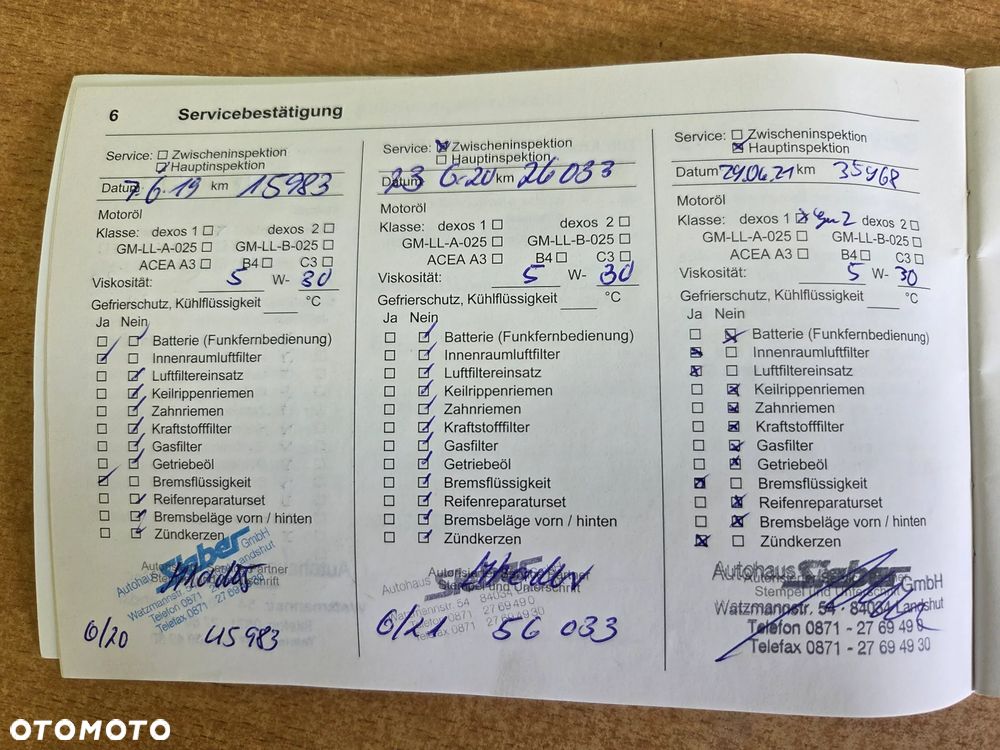 6 Servicebestätigung
Service: Zwischeninspektion
Hauptinspektion
Datum 7.6.19 km 15983
Motoröl
Klasse: dexos 1 dexos 2
GM-LL-A-025 GM-LL-B-025
ACEA A3 B4 C3
Viskosität: 5 W- 30
Gefrierschutz, Kühlflüssigkeit °C
Ja Nein
Batterie (Funkfernbedienung)
Innenraumluftfilter
Luftfiltereinsatz
Keilrippenriemen
Zahnriemen
Kraftstofffilter
Gasfilter
Getriebeöl
Bremsflüssigkeit
Reifenreparaturset
Bremsbeläge vorn / hinten
Zündkerzen
Autohaus Sieber GmbH
Watzmannstr. 54 Landshut
Telefon 0871
Telefax 0871 - 27 69 49 30
6/20 45983
Service: Zwischeninspektion
Hauptinspektion
Datum 23 6.20 km 26 033
Motoröl
Klasse: dexos 1 dexos 2
GM-LL-A-025 GM-LL-B-025
ACEA A3 B4 C3
Viskosität: 5 W- 30
Gefrierschutz, Kühlflüssigkeit °C
Ja Nein
Batterie (Funkfernbedienung)
Innenraumluftfilter
Luftfiltereinsatz
Keilrippenriemen
Zahnriemen
Kraftstofffilter
Gasfilter
Getriebeöl
Bremsflüssigkeit
Reifenreparaturset
Bremsbeläge vorn / hinten
Zündkerzen
Stempel und Unterschrift
Autohaus Sieber
Watzmannstr. 54 84034
Telefon 0871 27 69 49 0
Telefax 0871 27 69 49 30
6/21 56 033
Service: Zwischeninspektion
Hauptinspektion
Datum 29.06.21 km 35968
Motoröl
Klasse: dexos 1 Gen 2 dexos 2
GM-LL-A-025 GM-LL-B-025
ACEA A3 B4 C3
Viskosität: 5 W- 30
Gefrierschutz, Kühlflüssigkeit °C
Ja Nein
Batterie (Funkfernbedienung)
Innenraumluftfilter
Luftfiltereinsatz
Keilrippenriemen
Zahnriemen
Kraftstofffilter
Gasfilter
Getriebeöl
Bremsflüssigkeit
Reifenreparaturset
Bremsbeläge vorn / hinten
Zündkerzen
Stempel und Unterschrift
Autohaus Sieber GmbH
Watzmannstr. 54 - 84034 Landshut
Telefon 0871 - 27 69 49 0
Telefax 0871 - 27 69 49 30
OTOMOTO